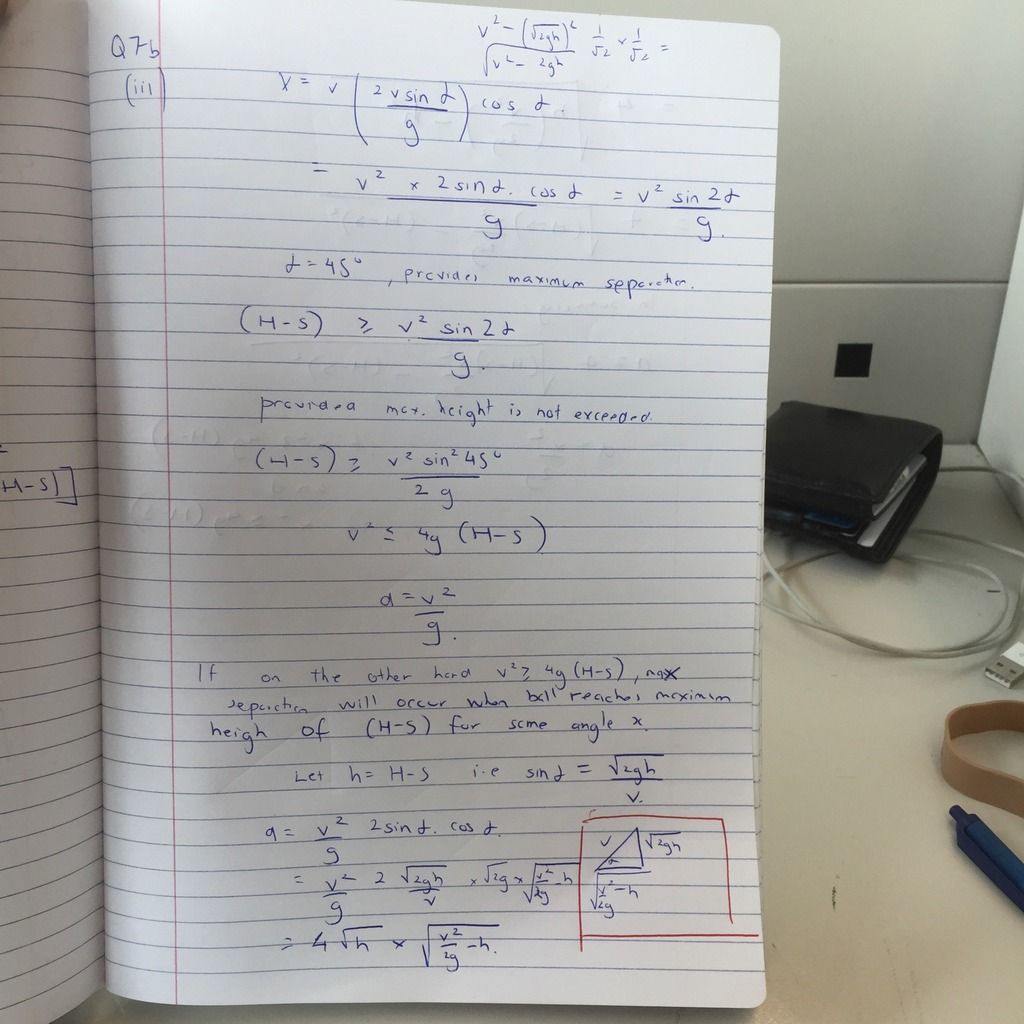 v² - (√2gh)² 1/√2 × 1/√2 =
√v² - 2gh
Q7b
(iii)
x = v (2 v sin α / g) cos α.
= v² × 2 sin α. cos α / g = v² sin 2α / g.
α = 45°, provides maximum separation.
(H-S) ≥ v² sin 2α / g.
provided max. height is not exceeded.
(H-S) ≥ v² sin² 45° / 2g
H-S)]
v² ≤ 4g (H-S)
d = v² / g.
If on the other hand v² ≥ 4g (H-S), max
separation will occur when ball reaches maximum
heigh of (H-S) for some angle x.
Let h = H-S i.e sin α = √2gh / v.
d = v²/g 2 sin α. cos α.
= v²/g 2 √2gh / v × √2g × √v²/2g - h
= 4 √h × √v²/2g - h.
v √2gh
α
√v²/2g - h